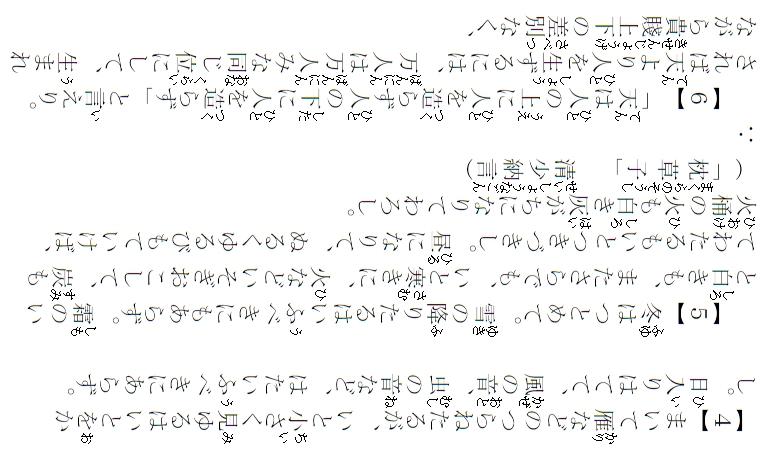 【4】まいて雁などのつらねたるが、いと小さく見ゆるはいとをか
し。日入りはてて、風の音、虫の音など、はたいふべきにあらず。
【5】冬はつとめて。雪の降りたるはいふべきにもあらず。霜のい
と白きも、またさらでも、いと寒きに、火などいそぎおこして、炭も
てわたるもいとつきづきし。昼になりて、ぬるくゆるびもていけば、
火桶の火も白き灰がちになりてわろし。
(「枕草子」 清少納言)
∵
【6】「天は人の上に人を造らず人の下に人を造らず」と言えり。
されば天より人を生ずるには、万人は万人みな同じ位にして、生まれ
ながら貴賤上下の差別なく、